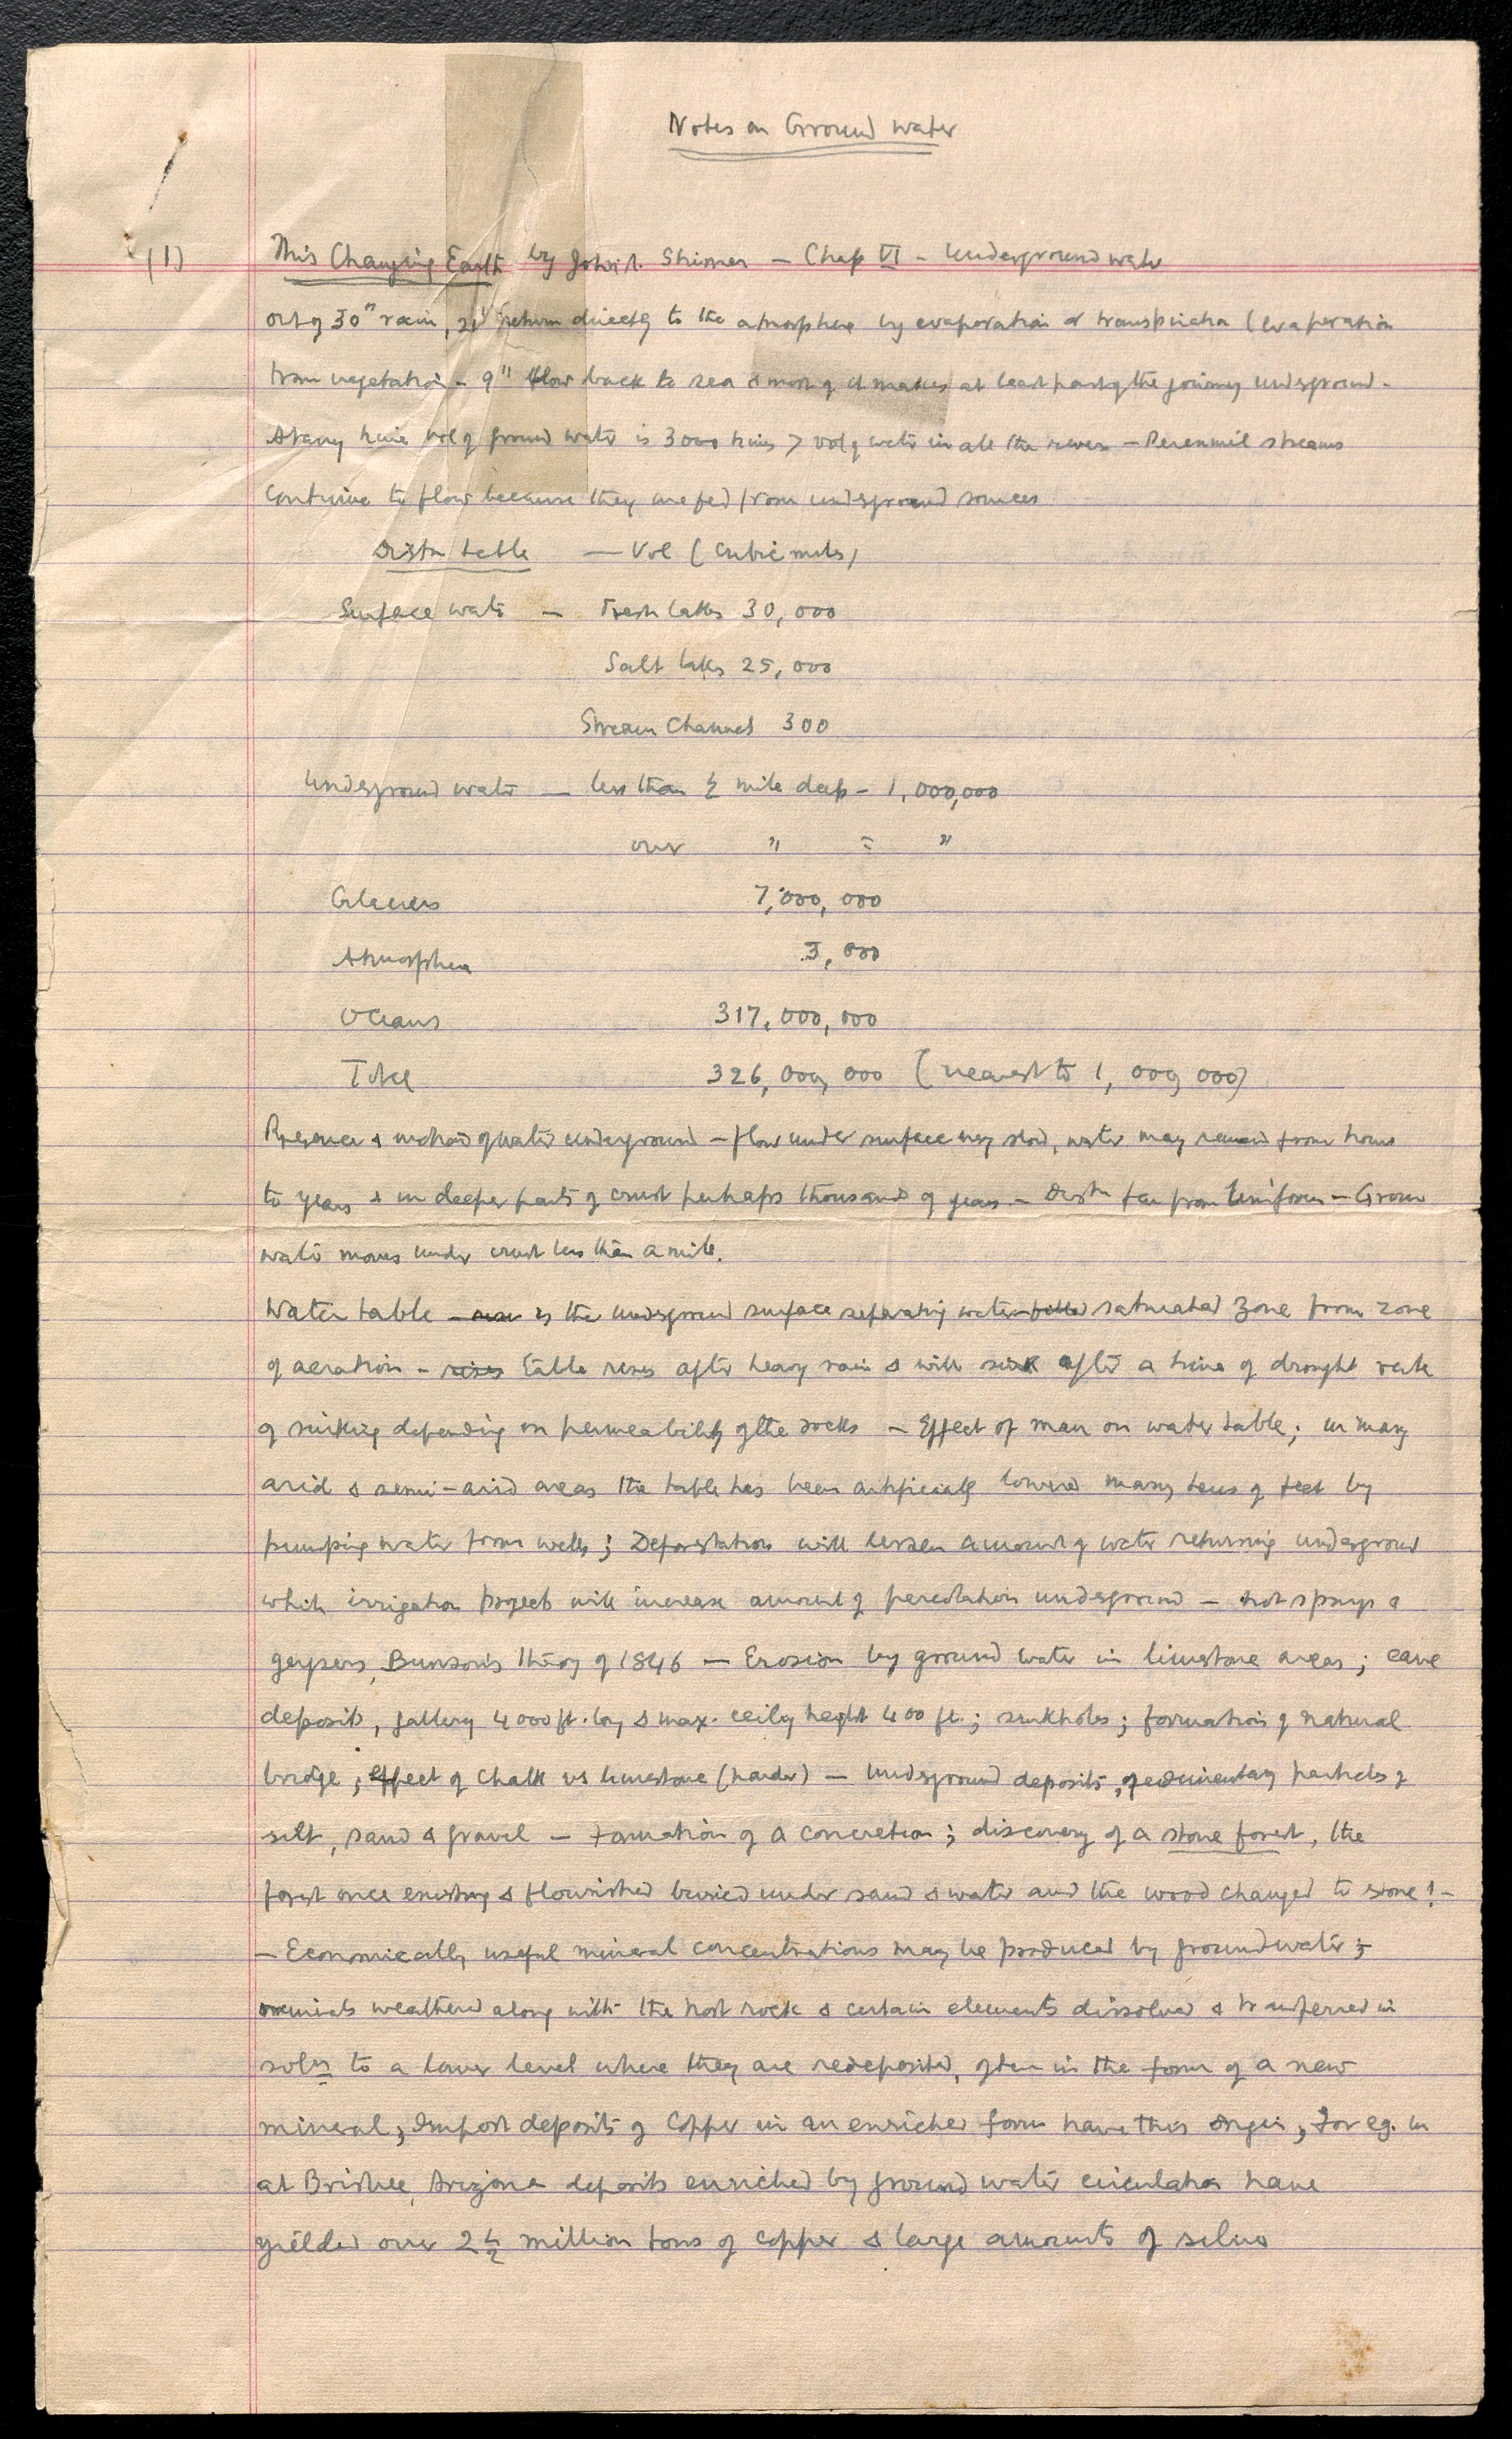 Notes on Ground water
(1) This Changing Earth by John A. Shimer - Chap VI - Underground wate
out of 30" rain, 21" return directly to the atmosphere by evaporation & transpiration (evaporation
from vegetation - 9" flow back to sea & most of it makes at least part of the journey underground -
At any time vol of ground water is 3000 times > vol of water in all the rivers - Perennil streams
Continue to flow because they are fed from underground sources
Distn table - Vol (Cubic miles)
Surface water - Fresh lakes 30,000
Salt lakes 25,000
Stream Channels 300
Underground water - less than ½ mile deep - 1,000,000
over " = "
Glaciers 7,000,000
Atmosphere 3,000
Oceans 317,000,000
Total 326,000,000 (nearest to 1,000,000)
Presence & motion of water underground - flow under surface very slow, water may remain from hours
to years & in deeper parts of crust perhaps thousands of years - Distn far from Uniform - Groun
water moves under crust less than a mile.
Water table - rise is the underground surface separating water-filled saturated zone from zone
of aeration - rises table rises after heavy rain & will sink after a time of drought rate
of sinking depending on permeability of the rocks - Effect of man on water table; in many
arid & semi-arid areas the table has been artificially lowered many tens of feet by
pumping water from wells; Deforestation will lessen amount of water returning undergroun
while irrigation projects will increase amount of percolation underground - hot springs &
geysers, Bunson's theory of 1846 - Erosion by ground water in limestone areas; cave
deposits, gallery 4000 ft. long & max. ceiling height 400 ft.; sinkholes; formation of natural
bridge; effect of chalk vs limestone (harder) - Underground deposits, of sedimentary particles of
silt, sand & gravel - Formation of a concretion; discovery of a stone forest, the
forest once existing & flourished buried under sand & water and the wood changed to stone! -
- Economically useful mineral concentrations may be produced by groundwater;
minerals weathered along with the host rock & certain elements dissolved & transferred in
soln to a lower level where they are redeposited, often in the form of a new
mineral; Import deposits of Copper in an enriched form have this origin, for eg. in
at Brisbee, Arizona deposits enriched by ground water circulation have
yielded over 2½ million tons of copper & large amounts of silver